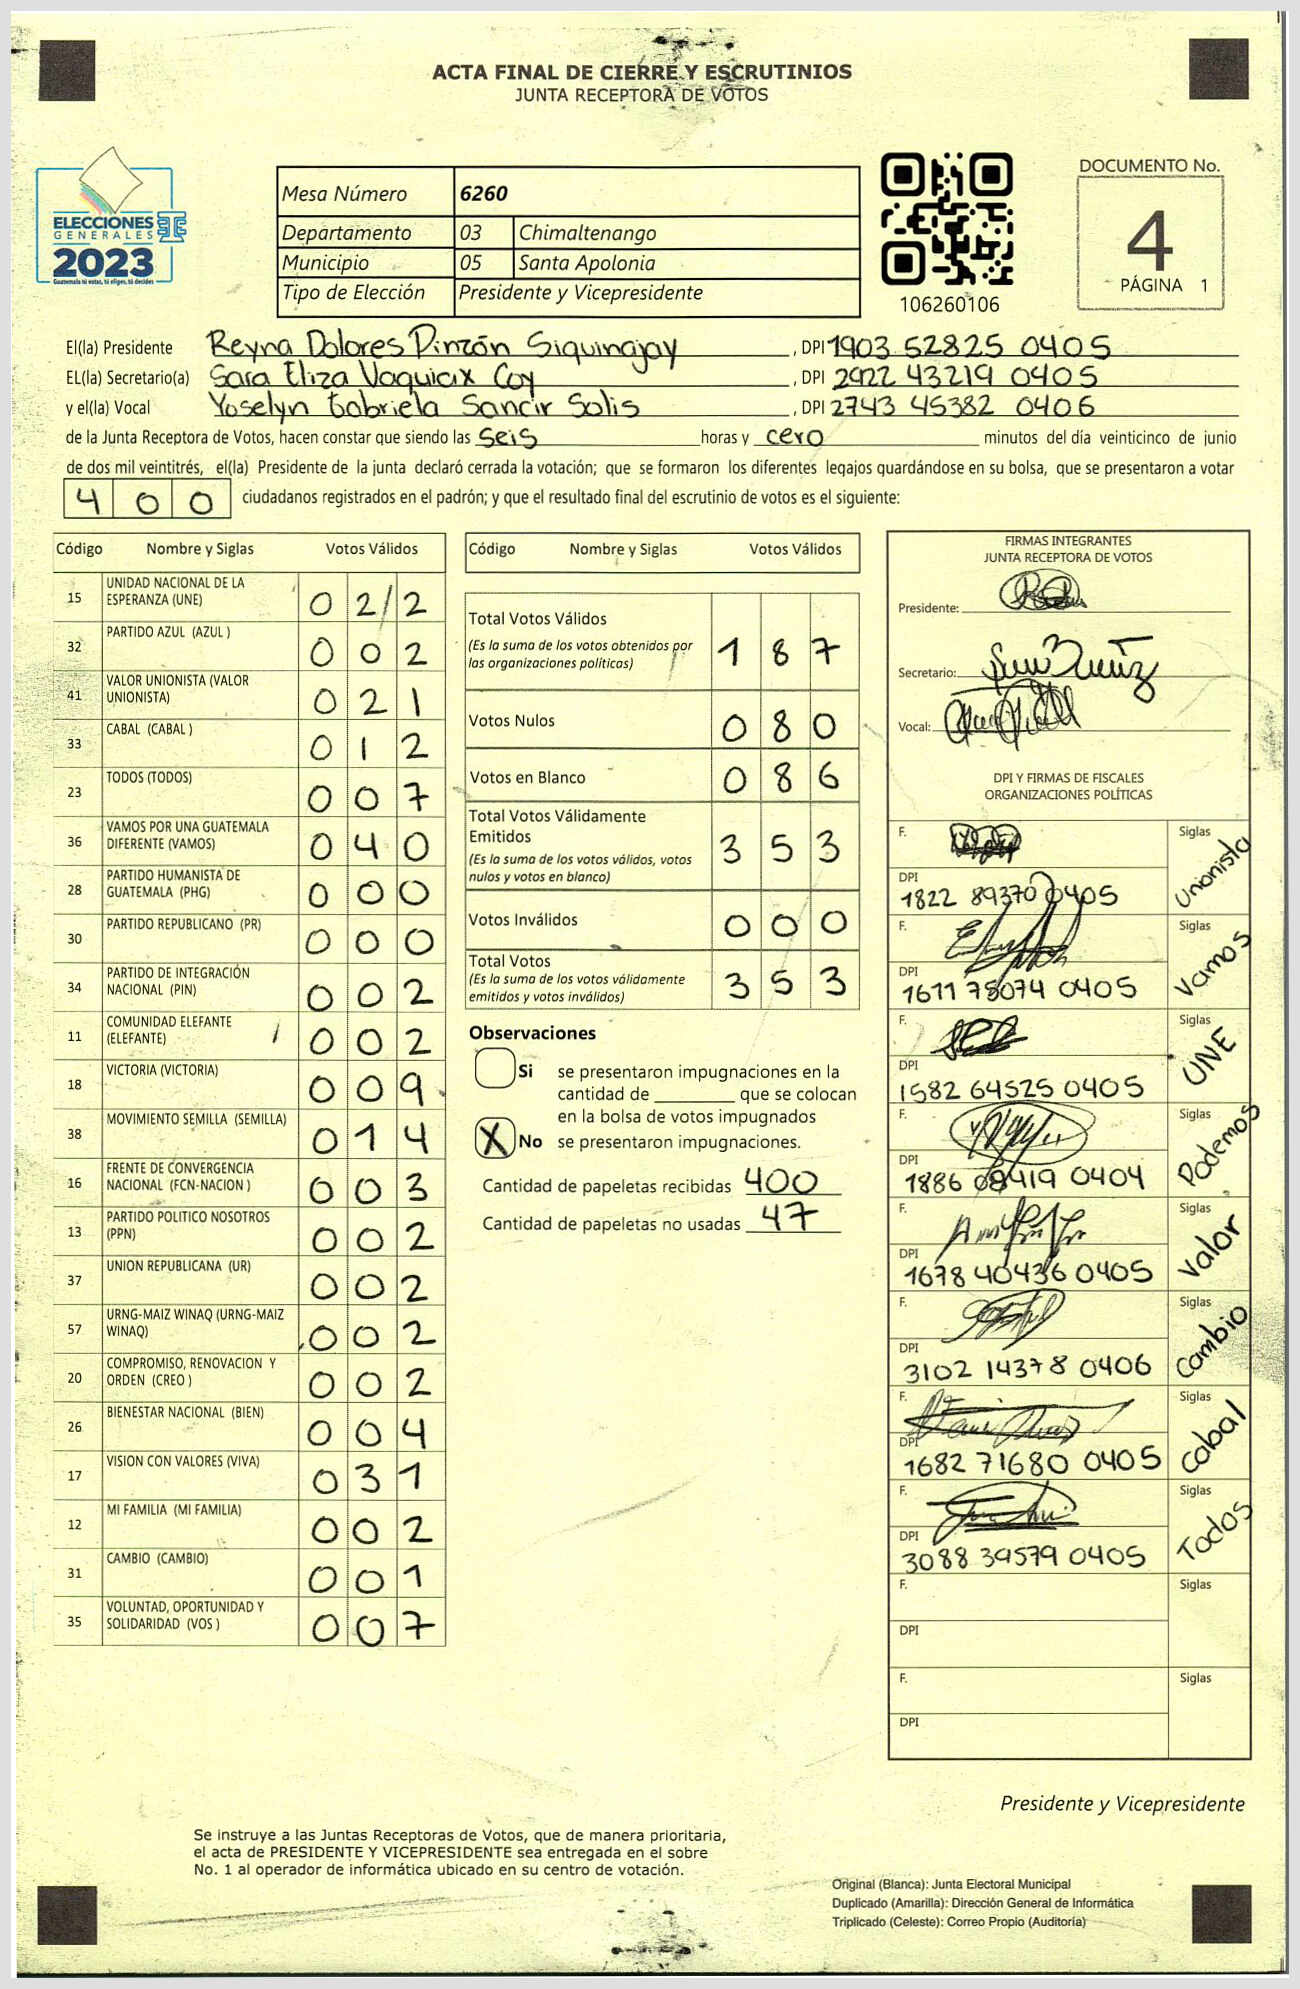 ACTA FINAL DE CIERRE Y ESCRUTINIOS
JUNTA RECEPTORA DE VOTOS
ELECCIONES
GENERALES
2023
Guatemala tú votas, tú eliges, tú decides
Mesa Número 6260
Departamento 03 Chimaltenango
Municipio 05 Santa Apolonia
Tipo de Elección Presidente y Vicepresidente
106260106
DOCUMENTO No.
4
PÁGINA 1
El(la) Presidente Reyna Dolores Pinzón Siquinajay, DPI 1903 52825 0405
EL(la) Secretario(a) Sara Eliza Vaquiax Coy, DPI 2922 43219 0405
y el(la) Vocal Yoselyn Gabriela Sancir Solis, DPI 2743 45382 0406
de la Junta Receptora de Votos, hacen constar que siendo las seis horas y cero minutos del día veinticinco de junio
de dos mil veintitrés, el(la) Presidente de la junta declaró cerrada la votación; que se formaron los diferentes legajos guardándose en su bolsa, que se presentaron a votar
400 ciudadanos registrados en el padrón; y que el resultado final del escrutinio de votos es el siguiente:
Código Nombre y Siglas Votos Válidos
15 UNIDAD NACIONAL DE LA ESPERANZA (UNE) 0 2/2
32 PARTIDO AZUL (AZUL ) 0 0 2
41 VALOR UNIONISTA (VALOR UNIONISTA) 0 2 1
33 CABAL (CABAL ) 0 1 2
23 TODOS (TODOS) 0 0 7
36 VAMOS POR UNA GUATEMALA DIFERENTE (VAMOS) 0 4 0
28 PARTIDO HUMANISTA DE GUATEMALA (PHG) 0 0 0
30 PARTIDO REPUBLICANO (PR) 0 0 0
34 PARTIDO DE INTEGRACIÓN NACIONAL (PIN) 0 0 2
11 COMUNIDAD ELEFANTE (ELEFANTE) 0 0 2
18 VICTORIA (VICTORIA) 0 0 9
38 MOVIMIENTO SEMILLA (SEMILLA) 0 1 4
16 FRENTE DE CONVERGENCIA NACIONAL (FCN-NACION ) 0 0 3
13 PARTIDO POLITICO NOSOTROS (PPN) 0 0 2
37 UNION REPUBLICANA (UR) 0 0 2
57 URNG-MAIZ WINAQ (URNG-MAIZ WINAQ) 0 0 2
20 COMPROMISO, RENOVACION Y ORDEN (CREO ) 0 0 2
26 BIENESTAR NACIONAL (BIEN) 0 0 4
17 VISION CON VALORES (VIVA) 0 3 1
12 MI FAMILIA (MI FAMILIA) 0 0 2
31 CAMBIO (CAMBIO) 0 0 1
35 VOLUNTAD, OPORTUNIDAD Y SOLIDARIDAD (VOS ) 0 0 7
Código Nombre y Siglas Votos Válidos
Total Votos Válidos 1 8 7
(Es la suma de los votos obtenidos por
las organizaciones políticas)
Votos Nulos 0 8 0
Votos en Blanco 0 8 6
Total Votos Válidamente
Emitidos 3 5 3
(Es la suma de los votos válidos, votos
nulos y votos en blanco)
Votos Inválidos 0 0 0
Total Votos 3 5 3
(Es la suma de los votos válidamente
emitidos y votos inválidos)
Observaciones
Si se presentaron impugnaciones en la
cantidad de ________ que se colocan
en la bolsa de votos impugnados
X No se presentaron impugnaciones.
Cantidad de papeletas recibidas 400
Cantidad de papeletas no usadas 47
FIRMAS INTEGRANTES
JUNTA RECEPTORA DE VOTOS
Presidente:
Secretario:
Vocal:
DPI Y FIRMAS DE FISCALES
ORGANIZACIONES POLÍTICAS
F. Siglas Unionista
DPI 1822 89370 0405
F. Siglas Vamos
DPI 1611 78074 0405
F. Siglas UNE
DPI 1582 64525 0405
F. Siglas Podemos
DPI 1886 08419 0404
F. Siglas Valor
DPI 1678 40436 0405
F. Siglas Cambio
DPI 3102 14378 0406
F. Siglas Cabal
DPI 1682 71680 0405
F. Siglas Todos
DPI 3088 39579 0405
F. Siglas
DPI
F. Siglas
DPI
Presidente y Vicepresidente
Se instruye a las Juntas Receptoras de Votos, que de manera prioritaria,
el acta de PRESIDENTE Y VICEPRESIDENTE sea entregada en el sobre
No. 1 al operador de informática ubicado en su centro de votación.
Original (Blanca): Junta Electoral Municipal
Duplicado (Amarilla): Dirección General de Informática
Triplicado (Celeste): Correo Propio (Auditoría)